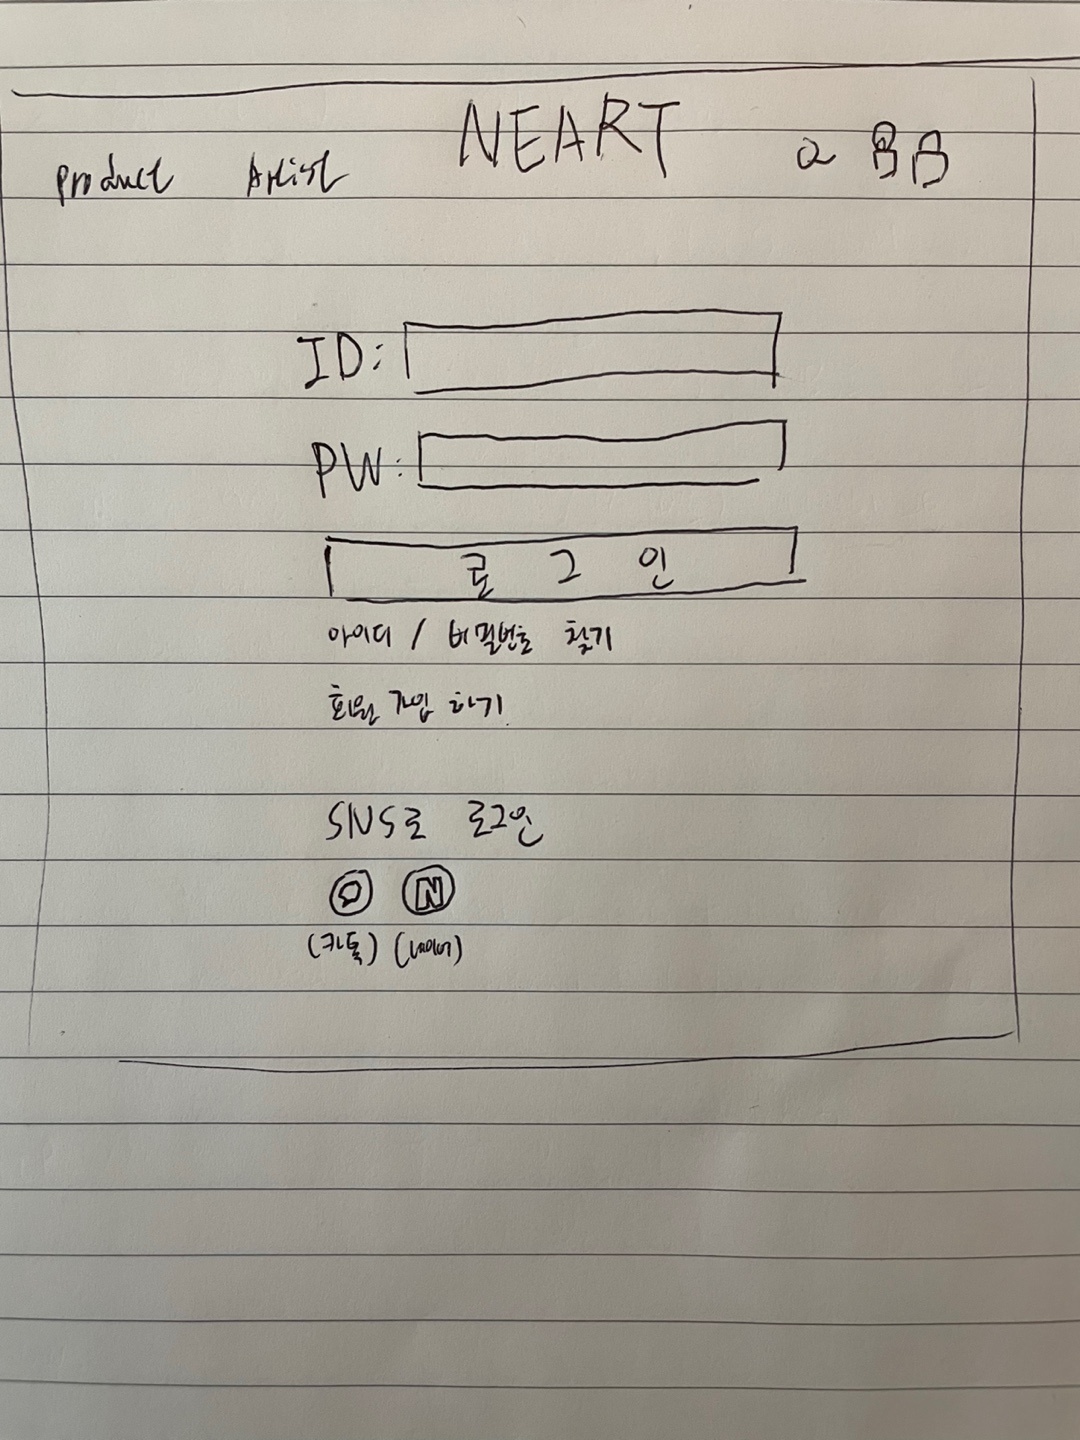 NEART
Product Artist
ID:
PW:
로그인
아이디 / 비밀번호 찾기
회원 가입 하기
SNS로 로그인
N
(카톡) (네이버)